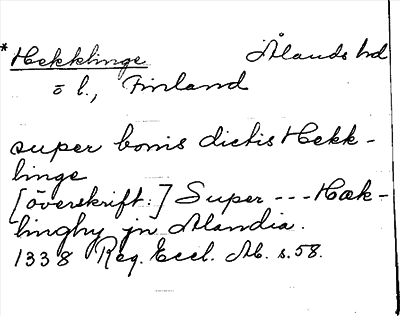 * Hekklinge Ålands hd
ö l., Finland
super bonis dictis Hekk-
linge
[överskrift:] Super --- Hæk-
lingby jn Alandia.
1338 Reg. Eccl. Ab. s. 58.